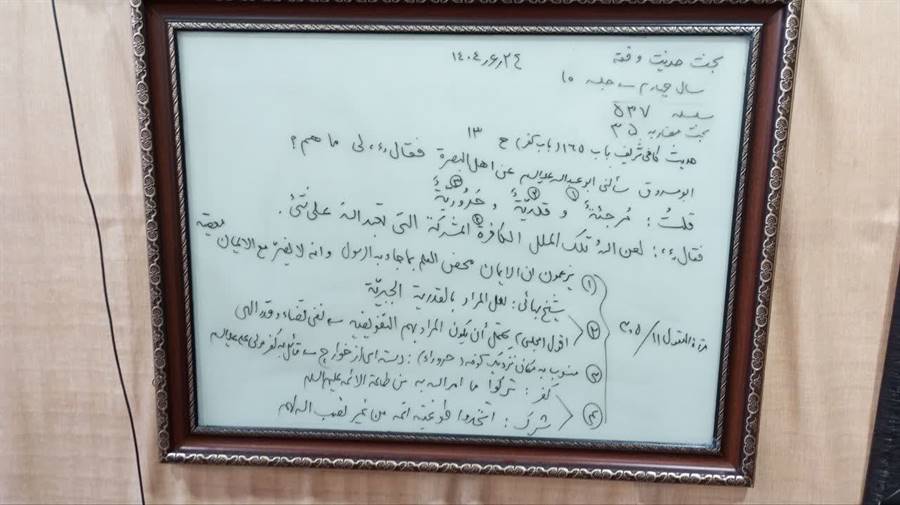 بحث حدیث و فقه ۱۴۰۴٫۶٫۲۴
سال چهارم ــ جلسه ۱۵
سلسله ۵۳۷
بحث مقارنه ۳۵
حدیث کافی شریف باب ۱۶۵ (باب کفر) ح ۱۳
ابومسروق سألنی ابوعبدالله علیه السلام عن اهل البصرة فقال (ع) لی ما هم؟
قلتُ: مُرجئةٌ ① و قَدَریّةٌ ② و حَرُوریّةٌ ③
فقال (ع): لعن اللهُ تلک الملل الکافرة ④ المشرکة التی لا تعبد الله علی شیء.
① یزعمون ان الایمان محض العلم بما جاء به الرسول و انه لا یضر مع الایمان معصیة
② شیخ بهائی: لعل المراد بالقدریة الجبریّة
اقول (مجلسی) یحتمل أن یکون المراد بهم التفویضیة ــ نفی قضاء و قدر الهی
③ منسوب به مکانی نزدیک کوفه (حروراء): دسته ای از خوارج ــ قائل به کفر علی علیه السلام
④ کفر: ترکوا ما امر الله به من طاعة الائمة علیهم السلام
شرک: اتخذوا طواغیته ائمه من غیر نصب الله لهم
مرآة العقول ۱۱/۲۰۵